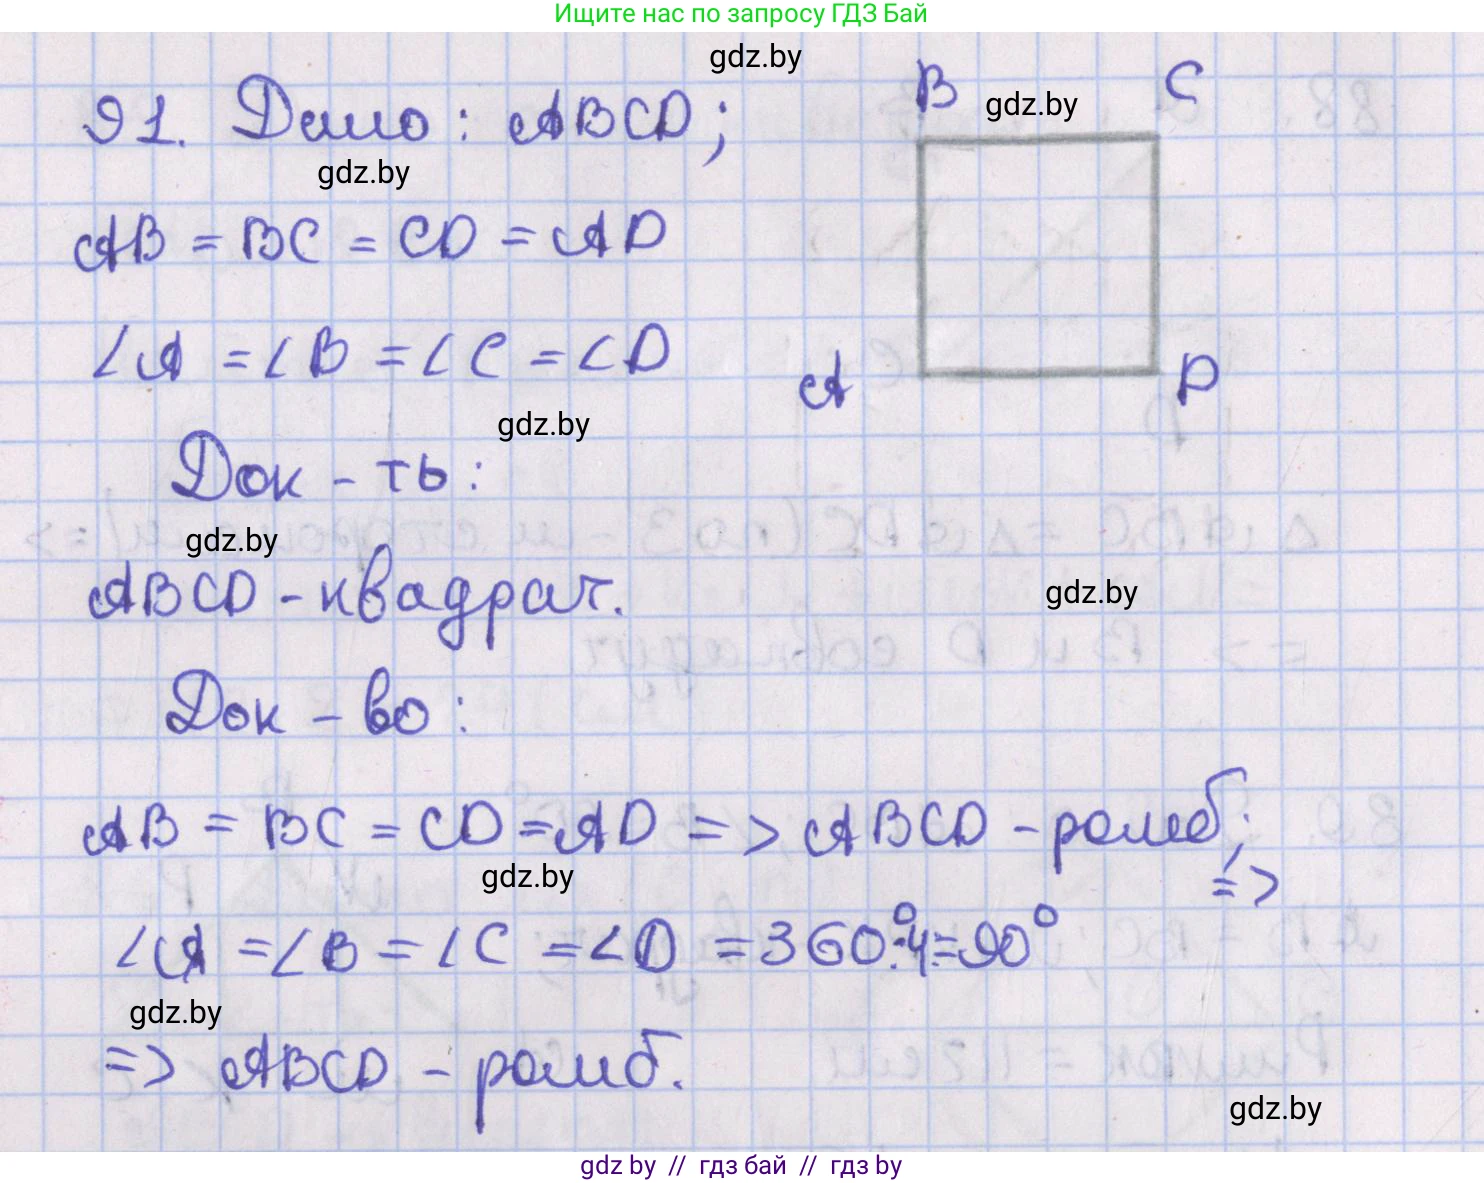 Ищите нас по запросу ГДЗ Бай
gdz.by
91. Дано: ABCD;
B
gdz.by
C
gdz.by
AB = BC = CD = AD
∠A = ∠B = ∠C = ∠D
A
D
gdz.by
Док-ть:
gdz.by
ABCD - квадрат.
gdz.by
Док-во:
AB = BC = CD = AD => ABCD - ромб;
=>
gdz.by
∠A = ∠B = ∠C = ∠D = 360°:4=90°
gdz.by
=> ABCD - ромб.
gdz.by
gdz.by // гдз бай // gdz.by